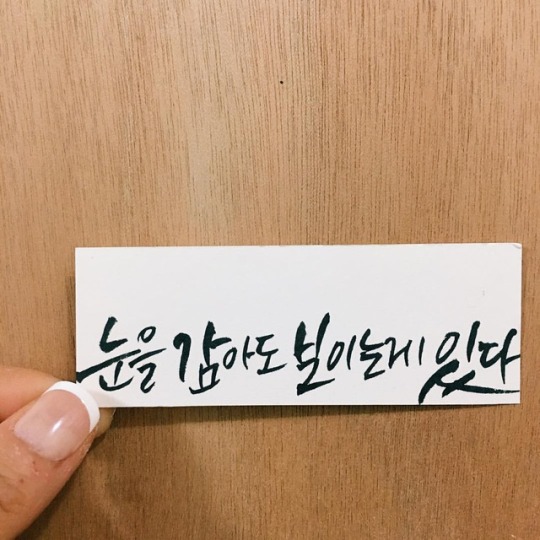 눈을 감아도 보이는게 있다